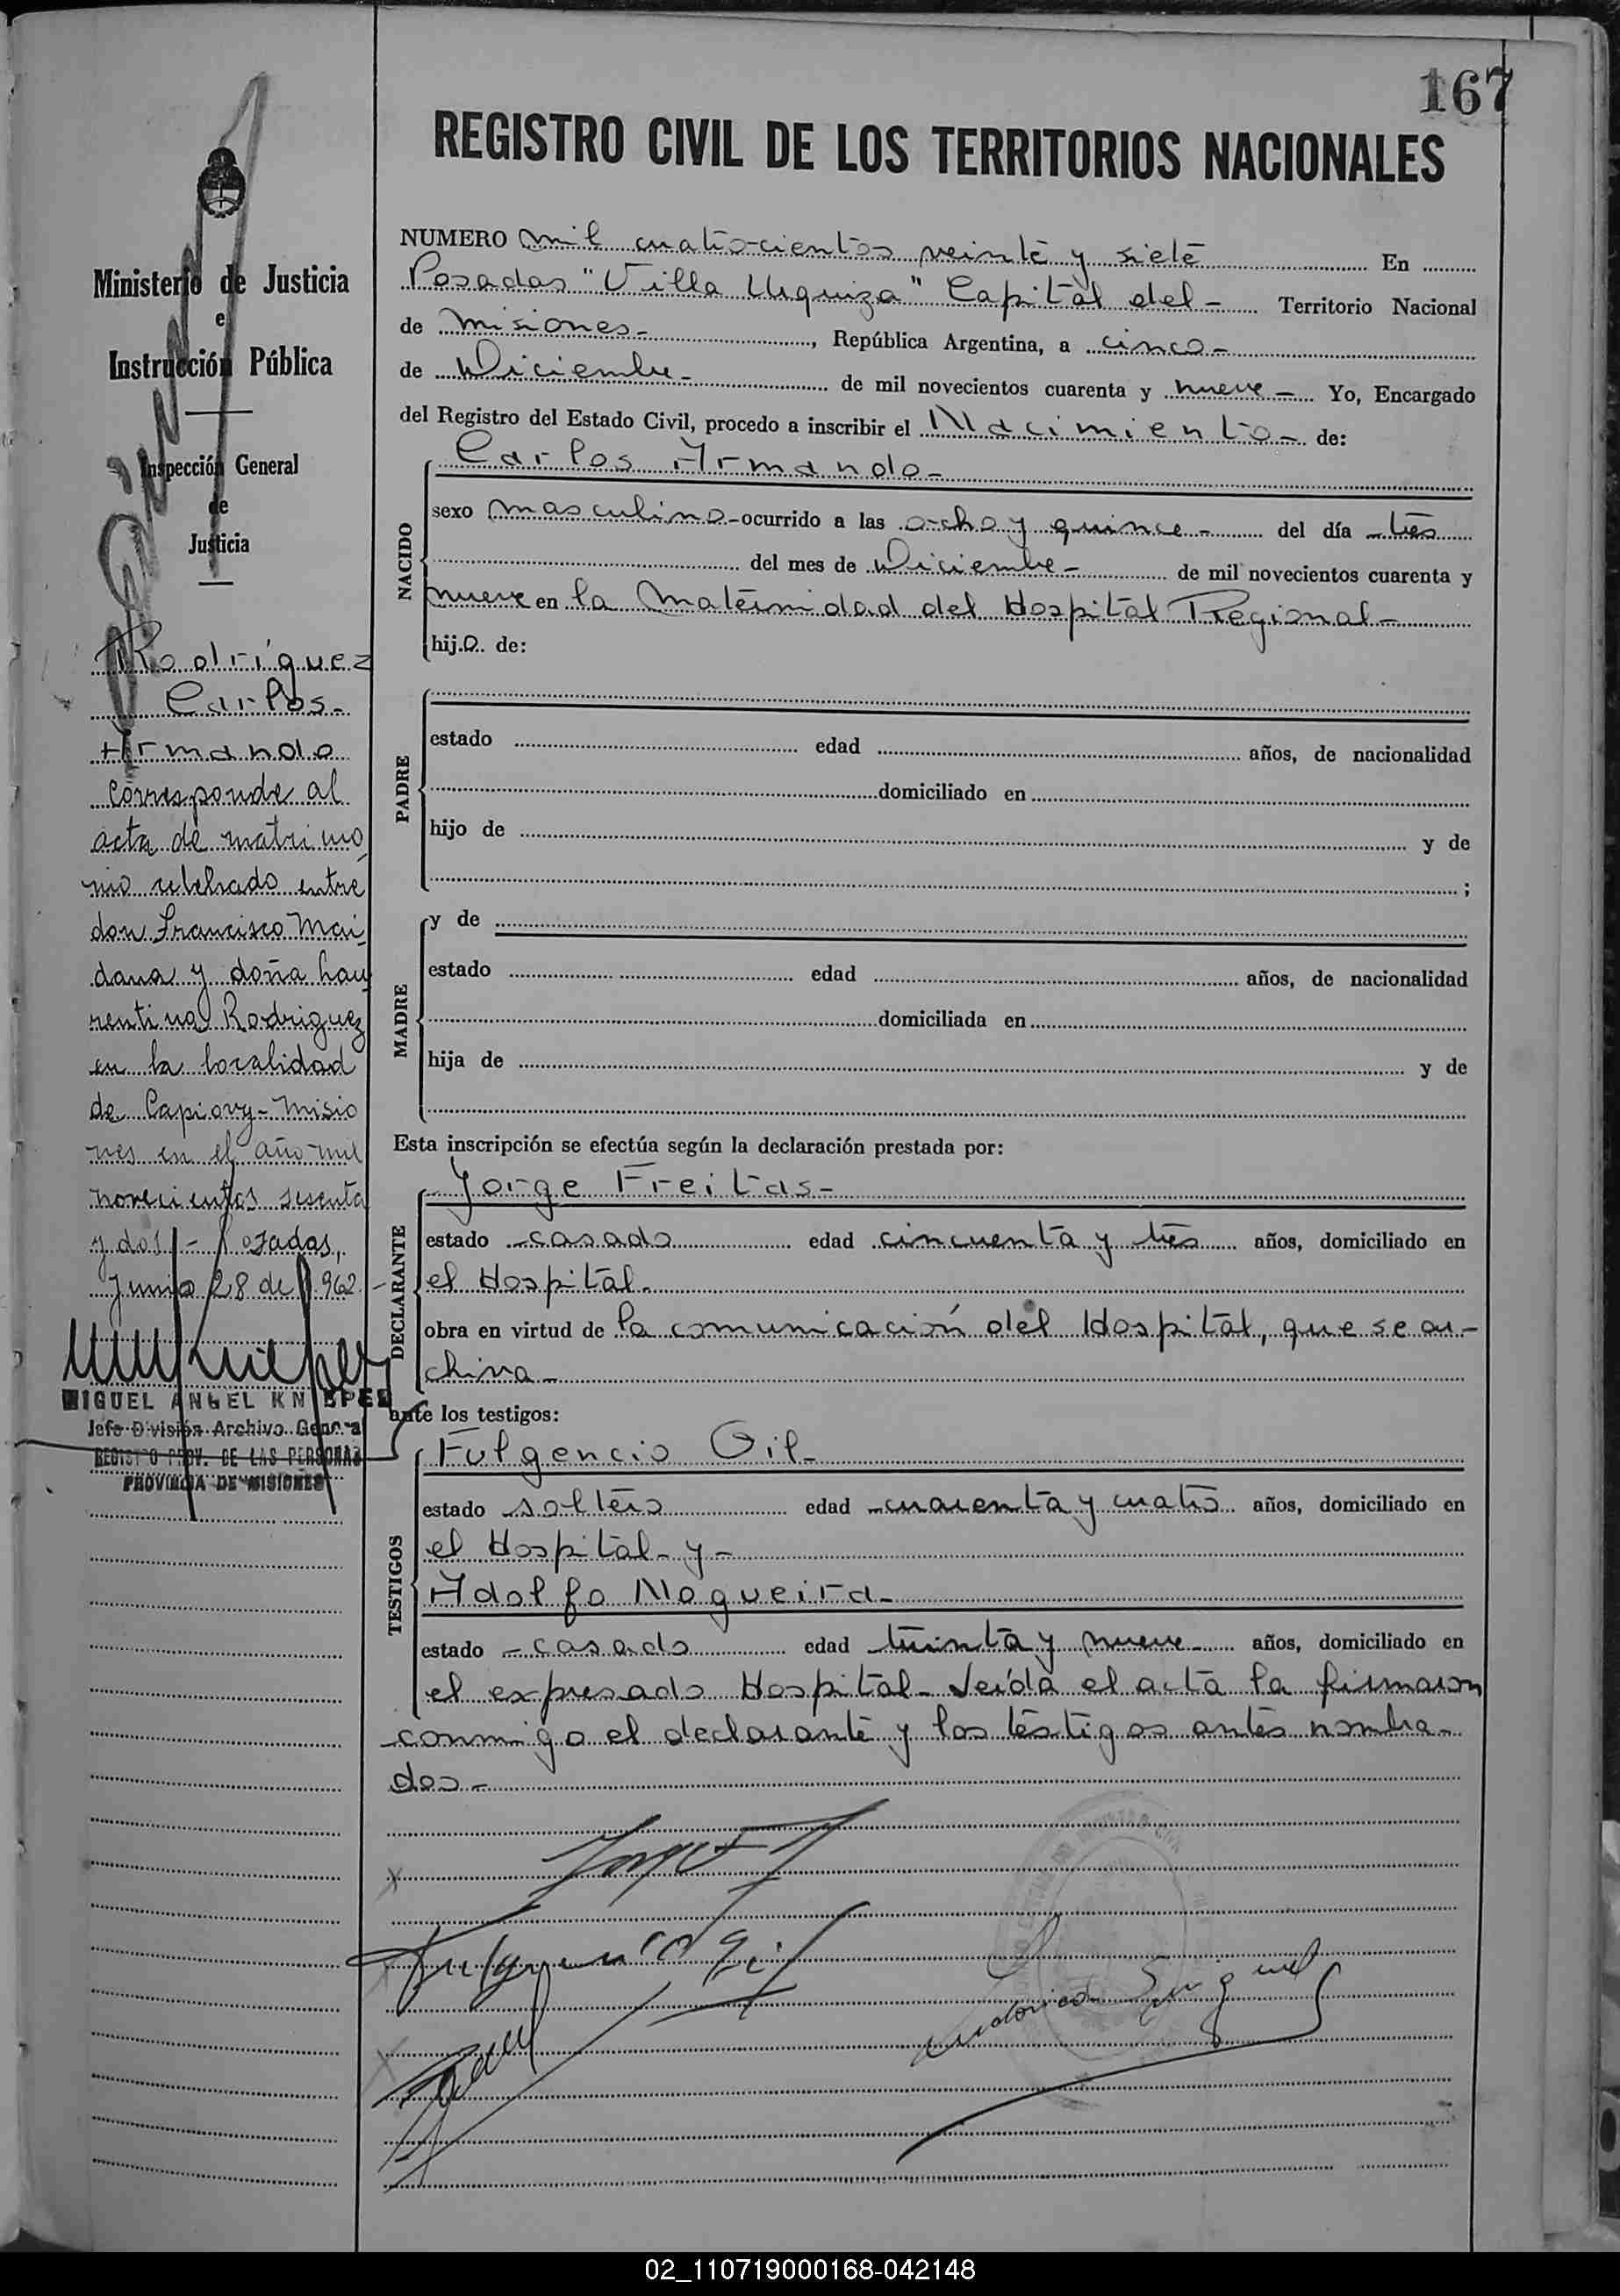 167
REGISTRO CIVIL DE LOS TERRITORIOS NACIONALES
Ministerio de Justicia
e
Instrucción Pública
Inspección General
de
Justicia
Rodríguez
Carlos-
Armando
Corresponde al
acta de matrimo
nio celebrado entre
don Francisco Mai
dana y doña Lau
rentina Rodriguez
en la localidad
de Capiovy-Misio
nes en el año mil
novecientos sesenta
y dos - Posadas,
Junio 28 de 1962-
MIGUEL ANGEL
Jefe División Archivo General
REGISTRO PROV. DE LAS PERSONAS
PROVINCIA DE MISIONES
NUMERO mil cuatrocientos veinte y siete En
Posadas "Villa Urquiza" Capital del- Territorio Nacional
de Misiones-, República Argentina, a cinco-
de Diciembre- de mil novecientos cuarenta y nueve- Yo, Encargado
del Registro del Estado Civil, procedo a inscribir el Nacimiento- de:
NACIDO
Carlos Armando-
sexo masculino-ocurrido a las ocho y quince- del día tres
del mes de Diciembre- de mil novecientos cuarenta y
nueve en la Maternidad del Hospital Regional-
hijo de:
PADRE
estado edad años, de nacionalidad
domiciliado en
hijo de y de
;
MADRE
y de
estado edad años, de nacionalidad
domiciliada en
hija de y de
Esta inscripción se efectúa según la declaración prestada por:
DECLARANTE
Jorge Freitas-
estado casado edad cincuenta y tres años, domiciliado en
el Hospital-
obra en virtud de la comunicación del Hospital, que se ar-
chiva-
ante los testigos:
TESTIGOS
Fulgencio Gil-
estado soltero edad cuarenta y cuatro años, domiciliado en
el Hospital- y-
Adolfo Nogueira-
estado casado edad treinta y nueve- años, domiciliado en
el expresado Hospital- Leída el acta la firmaron
conmigo el declarante y los testigos antes nombra-
dos-
Fulgencio Gil
02_110719000168-042148